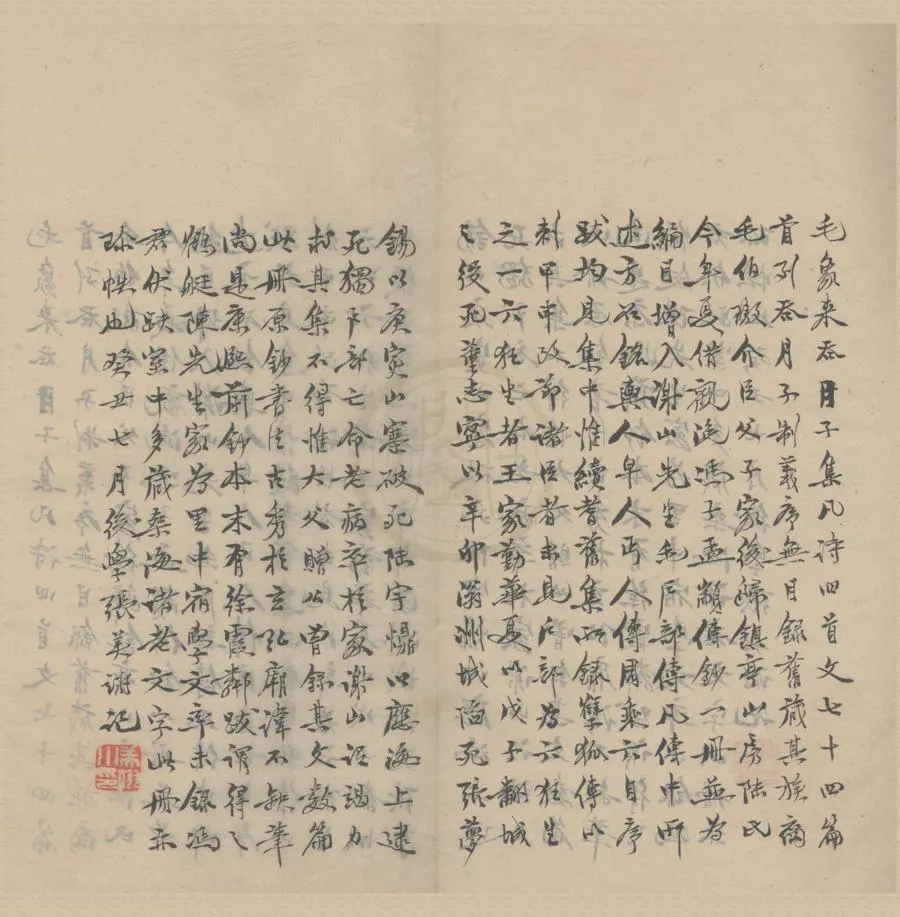 毛象来吞月子集凡诗四首文七十四篇
首列吞月子制義序無目録舊藏其族裔
毛伯璈介臣父子家後歸鎮亭山房陸氏
今年夏借觀浼馮子孟顓傳鈔一冊並為
編目增入謝山先生毛户部傳凡傳中所
述方石銘輿人皁人丐人傳周乘六自序
跋均見集中惟續耆舊集所録孽狐傳以
刺甲申改節諸臣者未見户部為六狂生
之一六狂生者王家勤華夏以戊子翻城
之後死董志寧以辛卯滃洲城陷死張夢
錫以庚寅山寨破死陸宇𤏩以應海上逮
死獨户部亡命老病卒於家謝山詒謁力
求其集不得惟大父贈公曾録其文數篇
此冊原鈔書法古秀於玄弘廟諱不缺筆
尚是康熙前鈔本末有徐霞鄰跋謂得之
鶴艇陳先生家為里中宿學文卒未録馮
君伏跗室中多藏桑海諸老文字此冊亦
珍帙也癸丑七月後學張美翊記